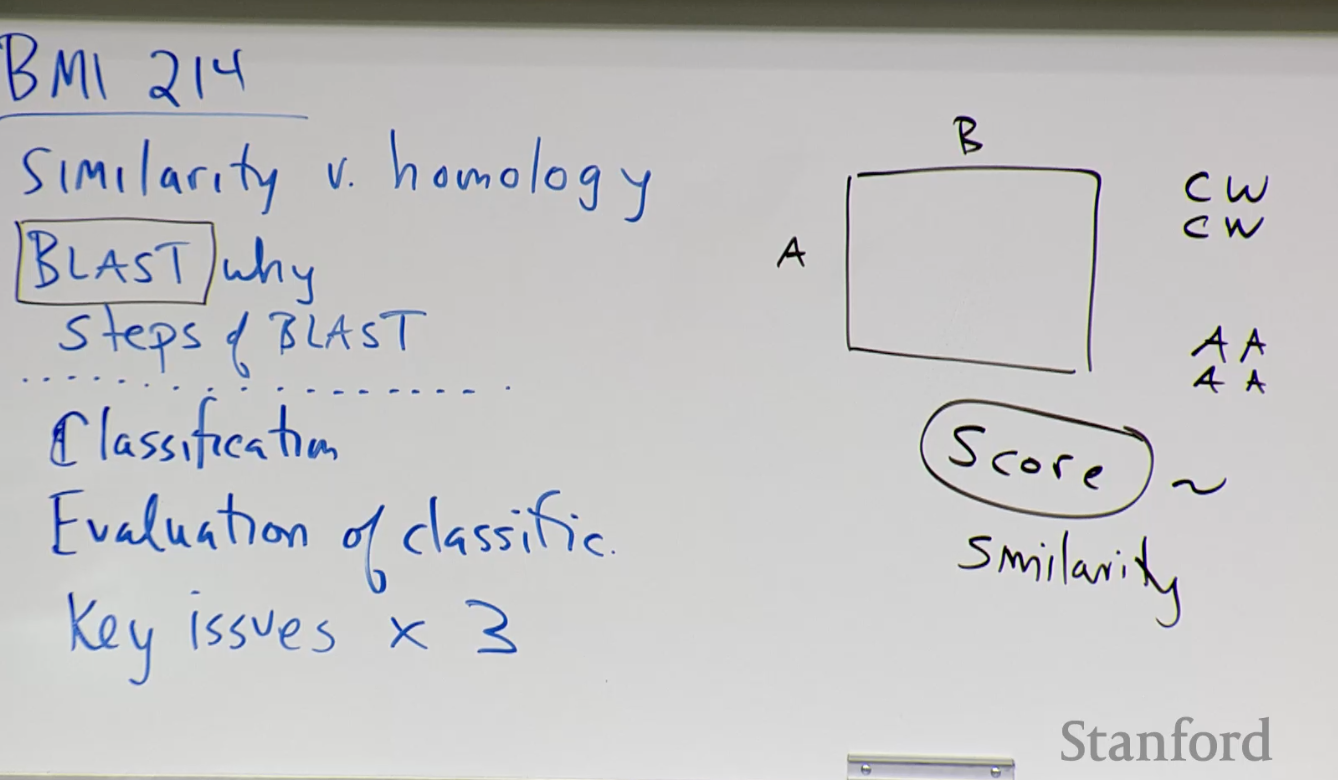 BMI 214
Similarity v. homology
BLAST why
Steps of BLAST
Classification
Evaluation of classific.
Key issues x 3
B
A
C W
C W
A A
A A
Score ~
Similarity
Stanford